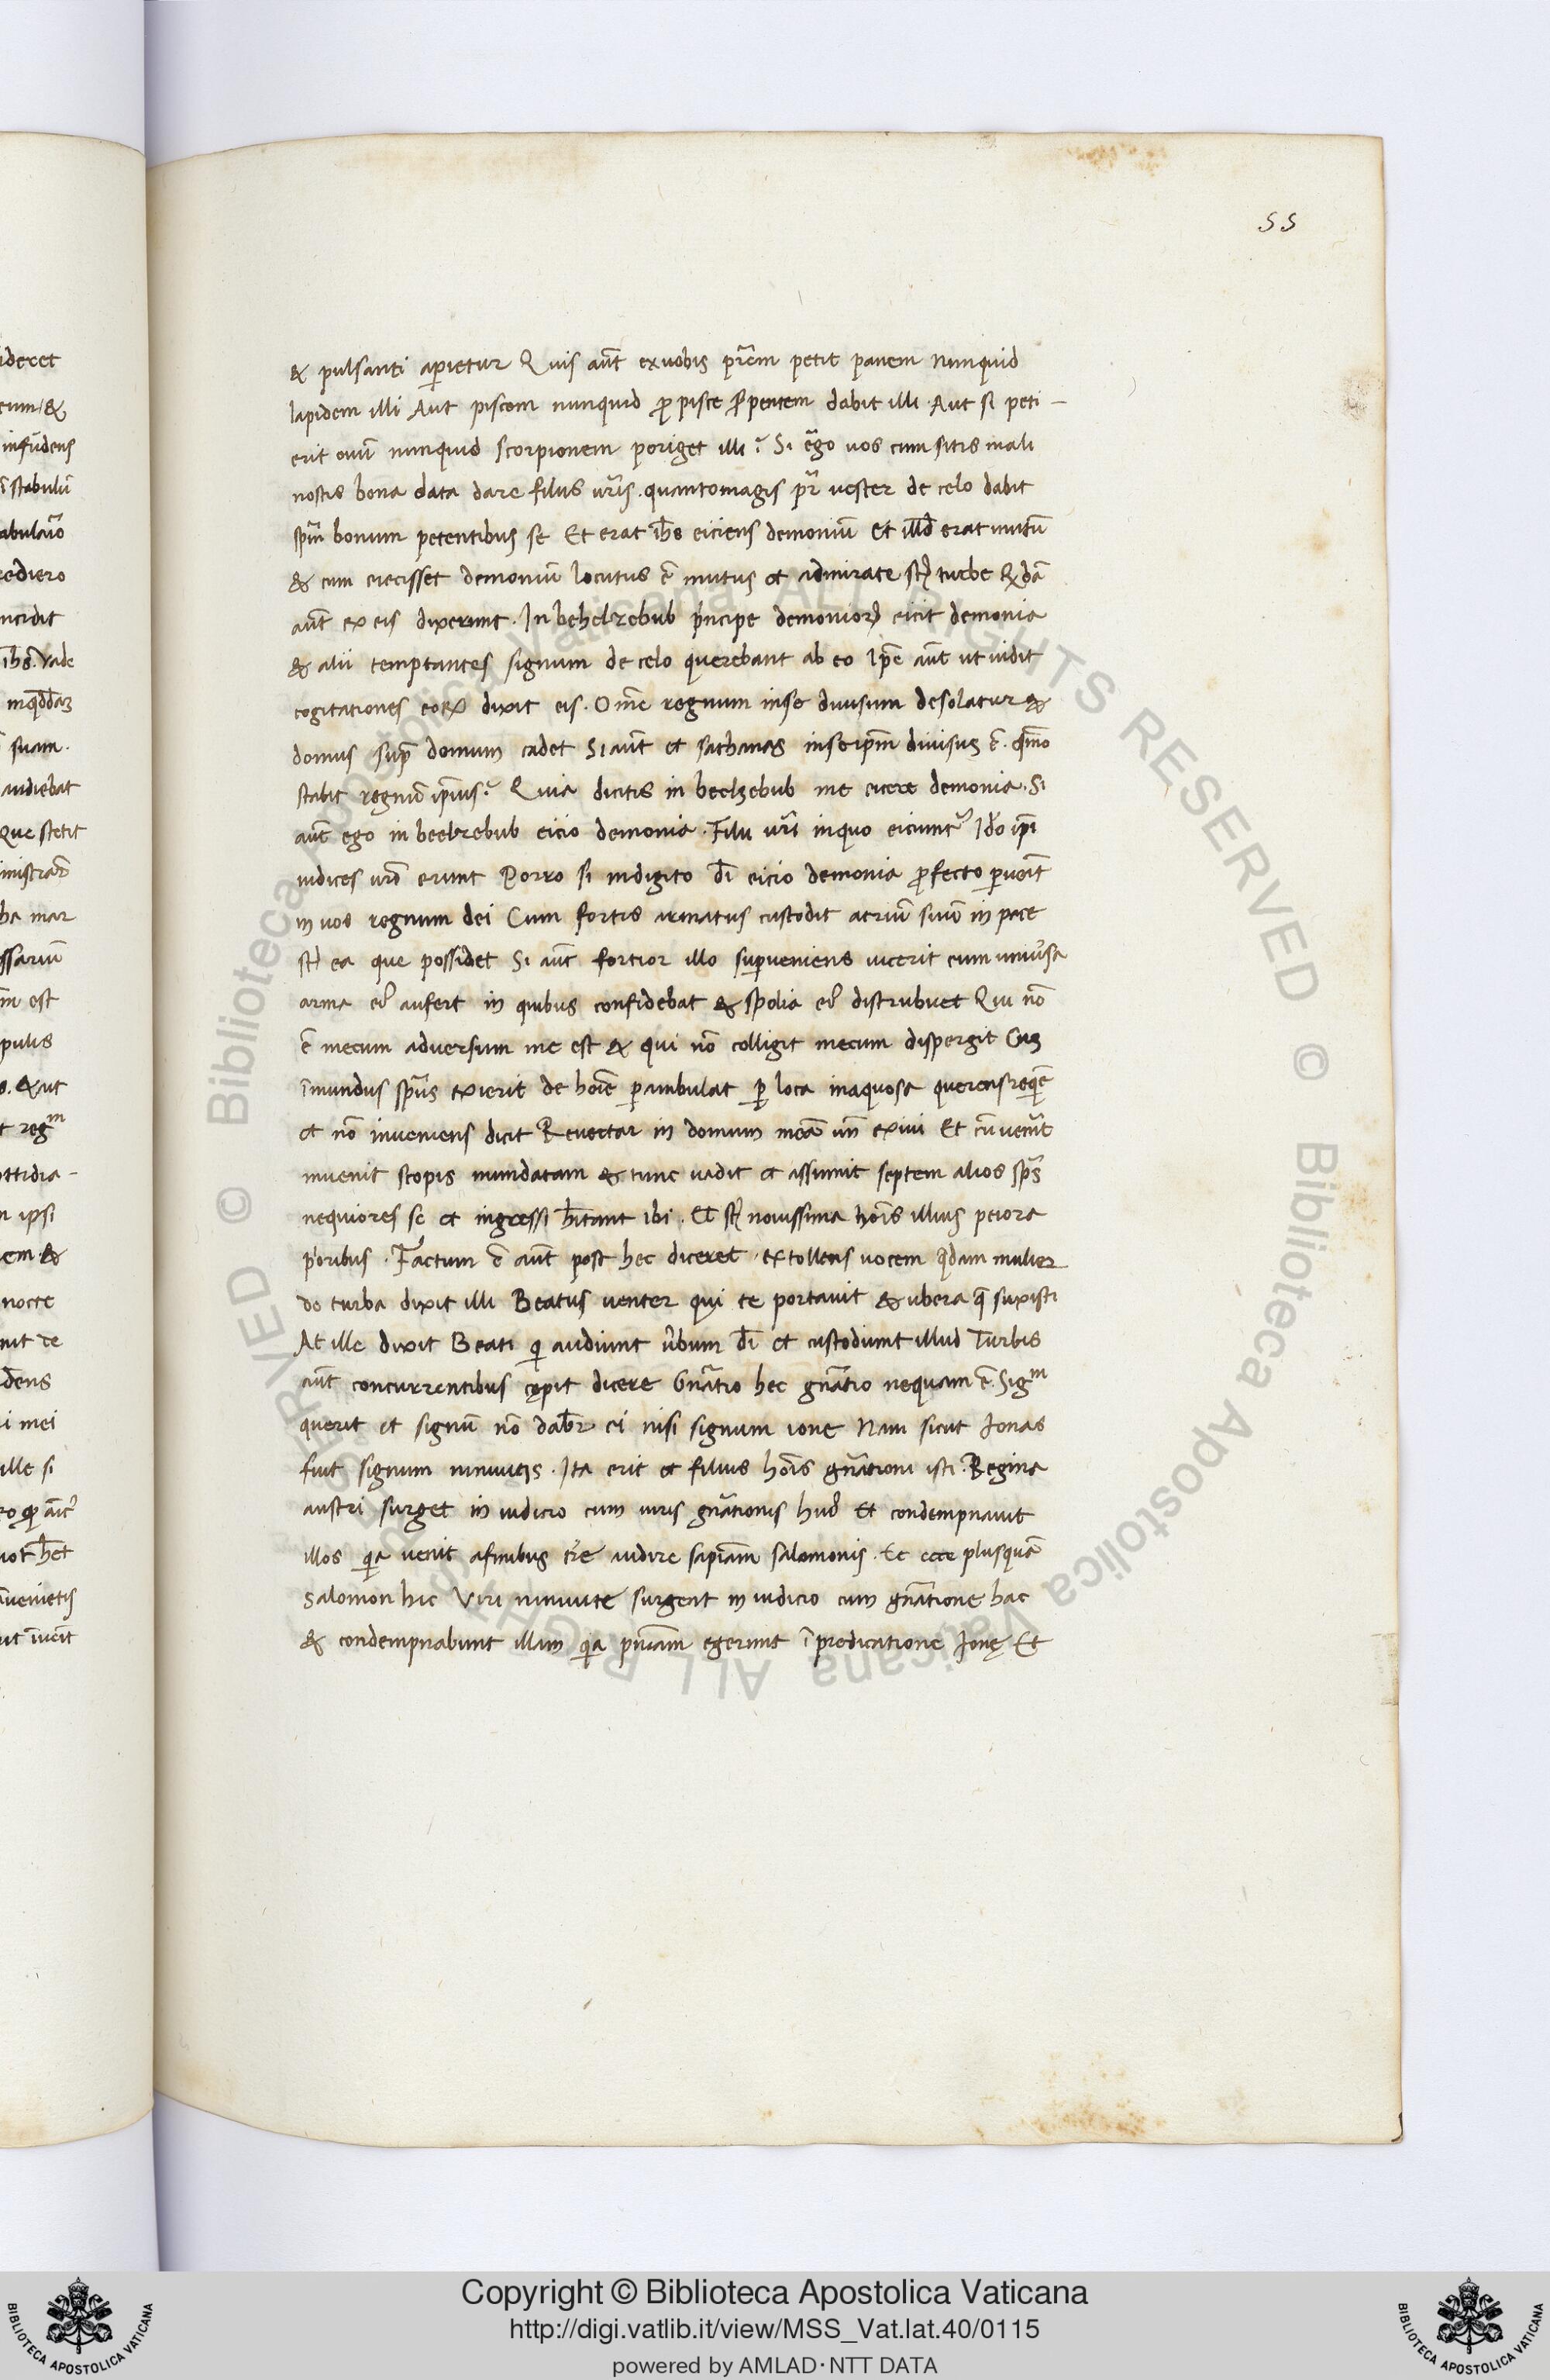 55
& pulsanti aperietur Quis aut̃ ex uobis pr̃em petit panem Nunquid
lapidem illi Aut piscem nunquid ꝓ pisce serpentem dabit illi. Aut si peti-
erit ouũ nunquid scorpionem poriget illi? Si ergo uos cum sitis mali
nostis bona data dare filiis ur̃is. quantomagis pr̃ uester de celo dabit
spm̃ bonum petentibus se Et erat ihs̃ eiciens demoniũ et illd̃ erat mutũ
& cum eiecisset demoniũ locutus ẽ mutus et admirate st̃ turbe Qdã
aut̃ ex eis dixerunt. In behelzebub pͥncipe demonioꝝ eicit demonia
& alii temptantes signum de celo querebant ab eo Ip̃e aut̃ ut uidit
cogitationes eoꝝ dixit eis. Om̃e regnum inse diuisum desolatur &
domus supᵃ domum cadet Si aut̃ et sathanas inseip̃m diuisus ẽ. qm̃o
stabit regnũ ip̃ius? Quia dicitis in beelzebub me eicere demonia. Si
aut̃ ego in beelzebub eicio demonia. Filii ur̃i inquo eiciunt? Id̃o ip̃i
iudices ur̃i erunt Porro si indigito dĩ eicio demonia ꝓfecto ꝑuẽit
in uos regnum dei Cum fortis armatus custodit atriũ suũ in pace
st̃ ea que possidet Si aut̃ fortior illo suꝑueniens uicerit eum uniũsa
arma ei᾽ aufert in quibus confidebat & spolia ei᾽ distribuet Qui nõ
ẽ mecum aduersum me est & qui nõ colligit mecum dispergit Cuʒ
ĩmundus sp̃us exierit de hoĩe ꝑambulat ꝑ loca inaquosa querens requiẽ
et nõ inueniens dicit Reuertar in domum meã un̄ exiui Et cũ uen̄it
inuenit scopis mundatam & tunc uadit et assumit septem alios sp̃s
nequiores se et ingressi h̃itant ibi. Et st̃ nouissima hoĩs illius peiora
pͥoribus. Factum ẽ aut̃ post hec diceret extollens uocem q̃dam mulier
de turba dixit illi Beatus uenter qui te portauit & ubera q̃ suxisti
At ille dixit Beati qͥ audiunt ũbum dĩ et custodiunt illud Turbis
aut̃ concurrentibus cępit dicere Gñatio hec gñatio nequam ẽ. Sigᵐ
querit et signũ nõ dabit̃ ei nisi signum ione Nam sicut Jonas
fuit signum niniuitis. Ita erit et filius hoĩs gñationi isti. Regina
austri surget in iudicio cum uiris gñationis hui᾽ Et condempnauit
illos qͥa uenit afinibus tr̃e audire sapiam̃ salomonis. Et ecce plusquã
Salomon hic Viri niniuite surgent in iudicio cum gñatione hac
& condempnabunt illam qͥa pn̄iam egerunt ĩ predicatione Jonę Et
Copyright © Biblioteca Apostolica Vaticana
http://digi.vatlib.it/view/MSS_Vat.lat.40/0115
powered by AMLAD·NTT DATA